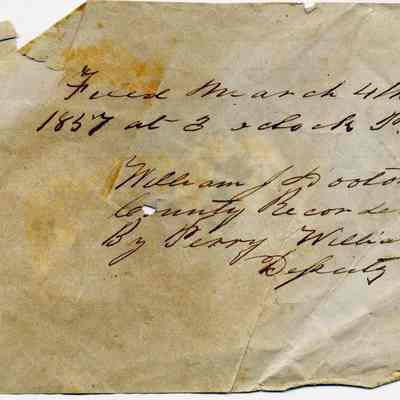 Filed March 4th
1857 at 3 oclock P.
William J Dooto
County Recorder
By Perry Willia
Deputy